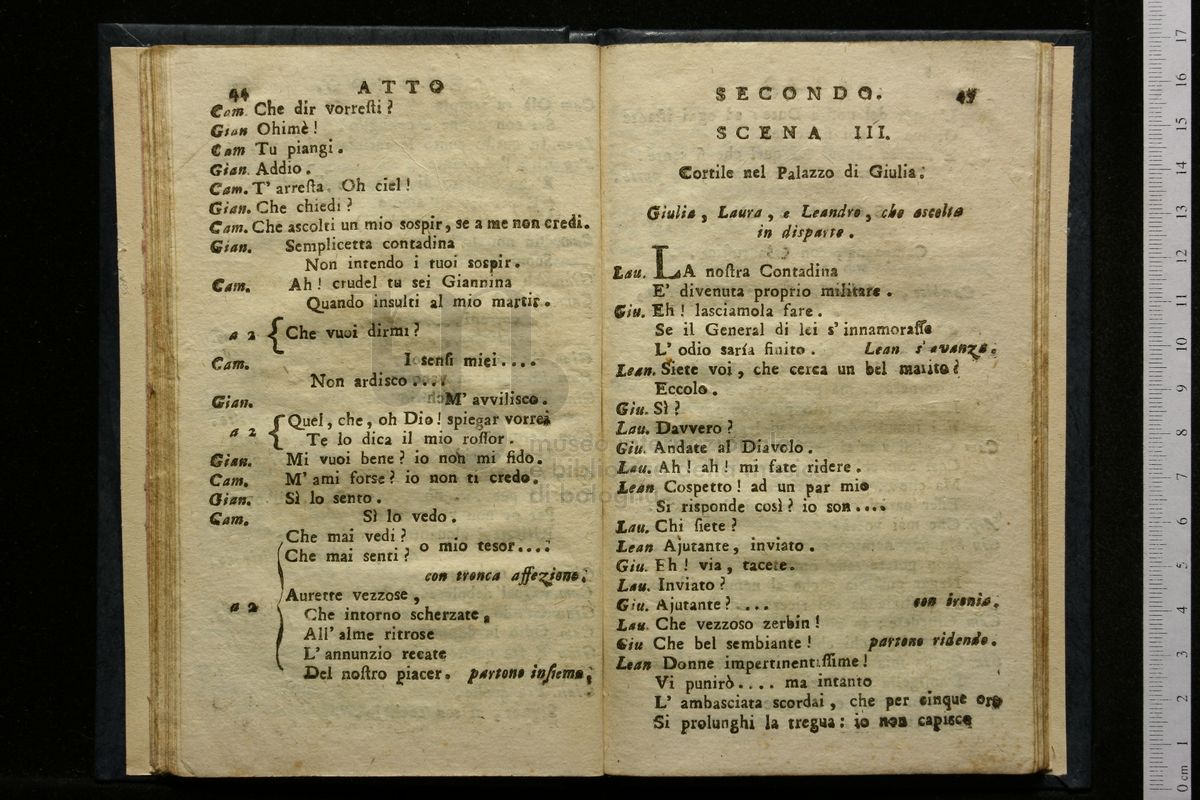 44 ATTO
Cam. Che dir vorreſti?
Gian Ohimè!
Cam Tu piangi.
Gian. Addio.
Cam. T' arreſta. Oh ciel!
Gian. Che chiedi?
Cam. Che ascolti un mio sospir, se a me non credi.
Gian. Semplicetta contadina
Non intendo i tuoi sospir.
Cam. Ah! crudel tu sei Giannina
Quando insulti al mio martir.
a 2 { Che vuoi dirmi?
Cam. I senſi miei....
Non ardisco....
Gian. M' avvilisco.
a 2 { Quel, che, oh Dio! spiegar vorrei
Te lo dica il mio roſſor.
Gian. Mi vuoi bene? io non mi fido.
Cam. M' ami forse? io non ti credo.
Gian. Sì lo sento.
Cam. Sì lo vedo.
Che mai vedi?
Che mai senti? o mio tesor....
con tronca affezione.
a 2 { Aurette vezzose,
Che intorno scherzate,
All' alme ritrose
L' annunzio recate
Del noſtro piacer. partono inſieme.
SECONDO. 45
SCENA III.
Cortile nel Palazzo di Giulia.
Giulia, Laura, e Leandro, che ascolta
in disparte.
Lau. LA noſtra Contadina
E' divenuta proprio militare.
Giu. Eh! lasciamola fare.
Se il General di lei s' innamoraſſe
L' odio saría finito. Lean s' avanza.
Lean. Siete voi, che cerca un bel marito?
Eccolo.
Giu. Sì?
Lau. Davvero?
Giu. Andate al Diavolo.
Lau. Ah! ah! mi fate ridere.
Lean Cospetto! ad un par mio
Si risponde così? io son....
Lau. Chi ſiete?
Lean Ajutante, inviato.
Giu. Eh! via, tacete.
Lau. Inviato?
Giu. Ajutante? ... con ironia.
Lau. Che vezzoso zerbin!
Giu Che bel sembiante! partono ridendo.
Lean Donne impertinentiſſime!
Vi punirò.... ma intanto
L' ambasciata scordai, che per cinque ore
Si prolunghi la tregua: io non capisco
museo internazionale
e biblioteca della musica
di bologna
0 cm 1 2 3 4 5 6 7 8 9 10 11 12 13 14 15 16 17